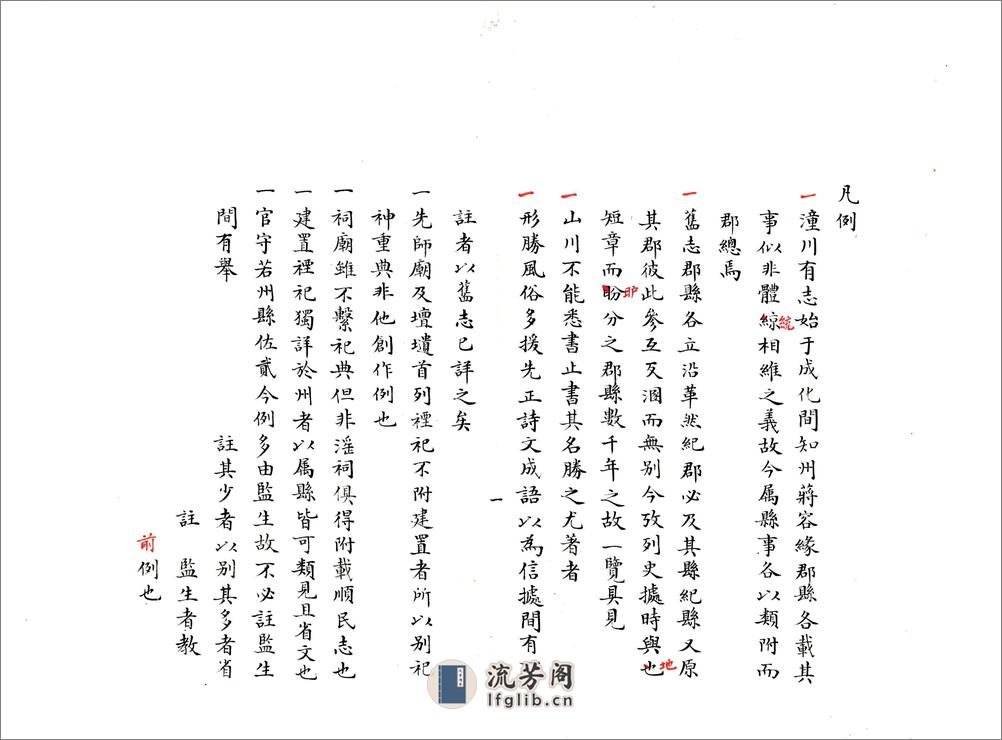 凡例
一潼川有志始于成化間知州蔣容緣郡縣各載其
事似非體綜統相維之義故今属縣事各以類附而
郡總焉
一舊志郡縣各立沿革然紀郡必及其縣紀縣又原
其郡彼此參互反溷而無別今攷列史據時與也地
短章而盼眆分之郡縣數千年之故一覽具見
一山川不能悉書止書其名勝之尤著者
一形勝風俗多援先正詩文成語以為信據間有
一
註者以舊志已詳之矣
一先師廟及壇壝首列禋祀不附建置者所以別祀
神重典非他創作例也
一祠廟雖不繫祀典但非滛祠俱得附載順民志也
一建置禋祀獨詳於州者以属縣皆可類見且省文也
一官守若州縣佐貳今例多由監生故不必註監生
間有舉 註其少者以別其多者省
註 監生者教
前例也
流芳阁
lfglib.cn